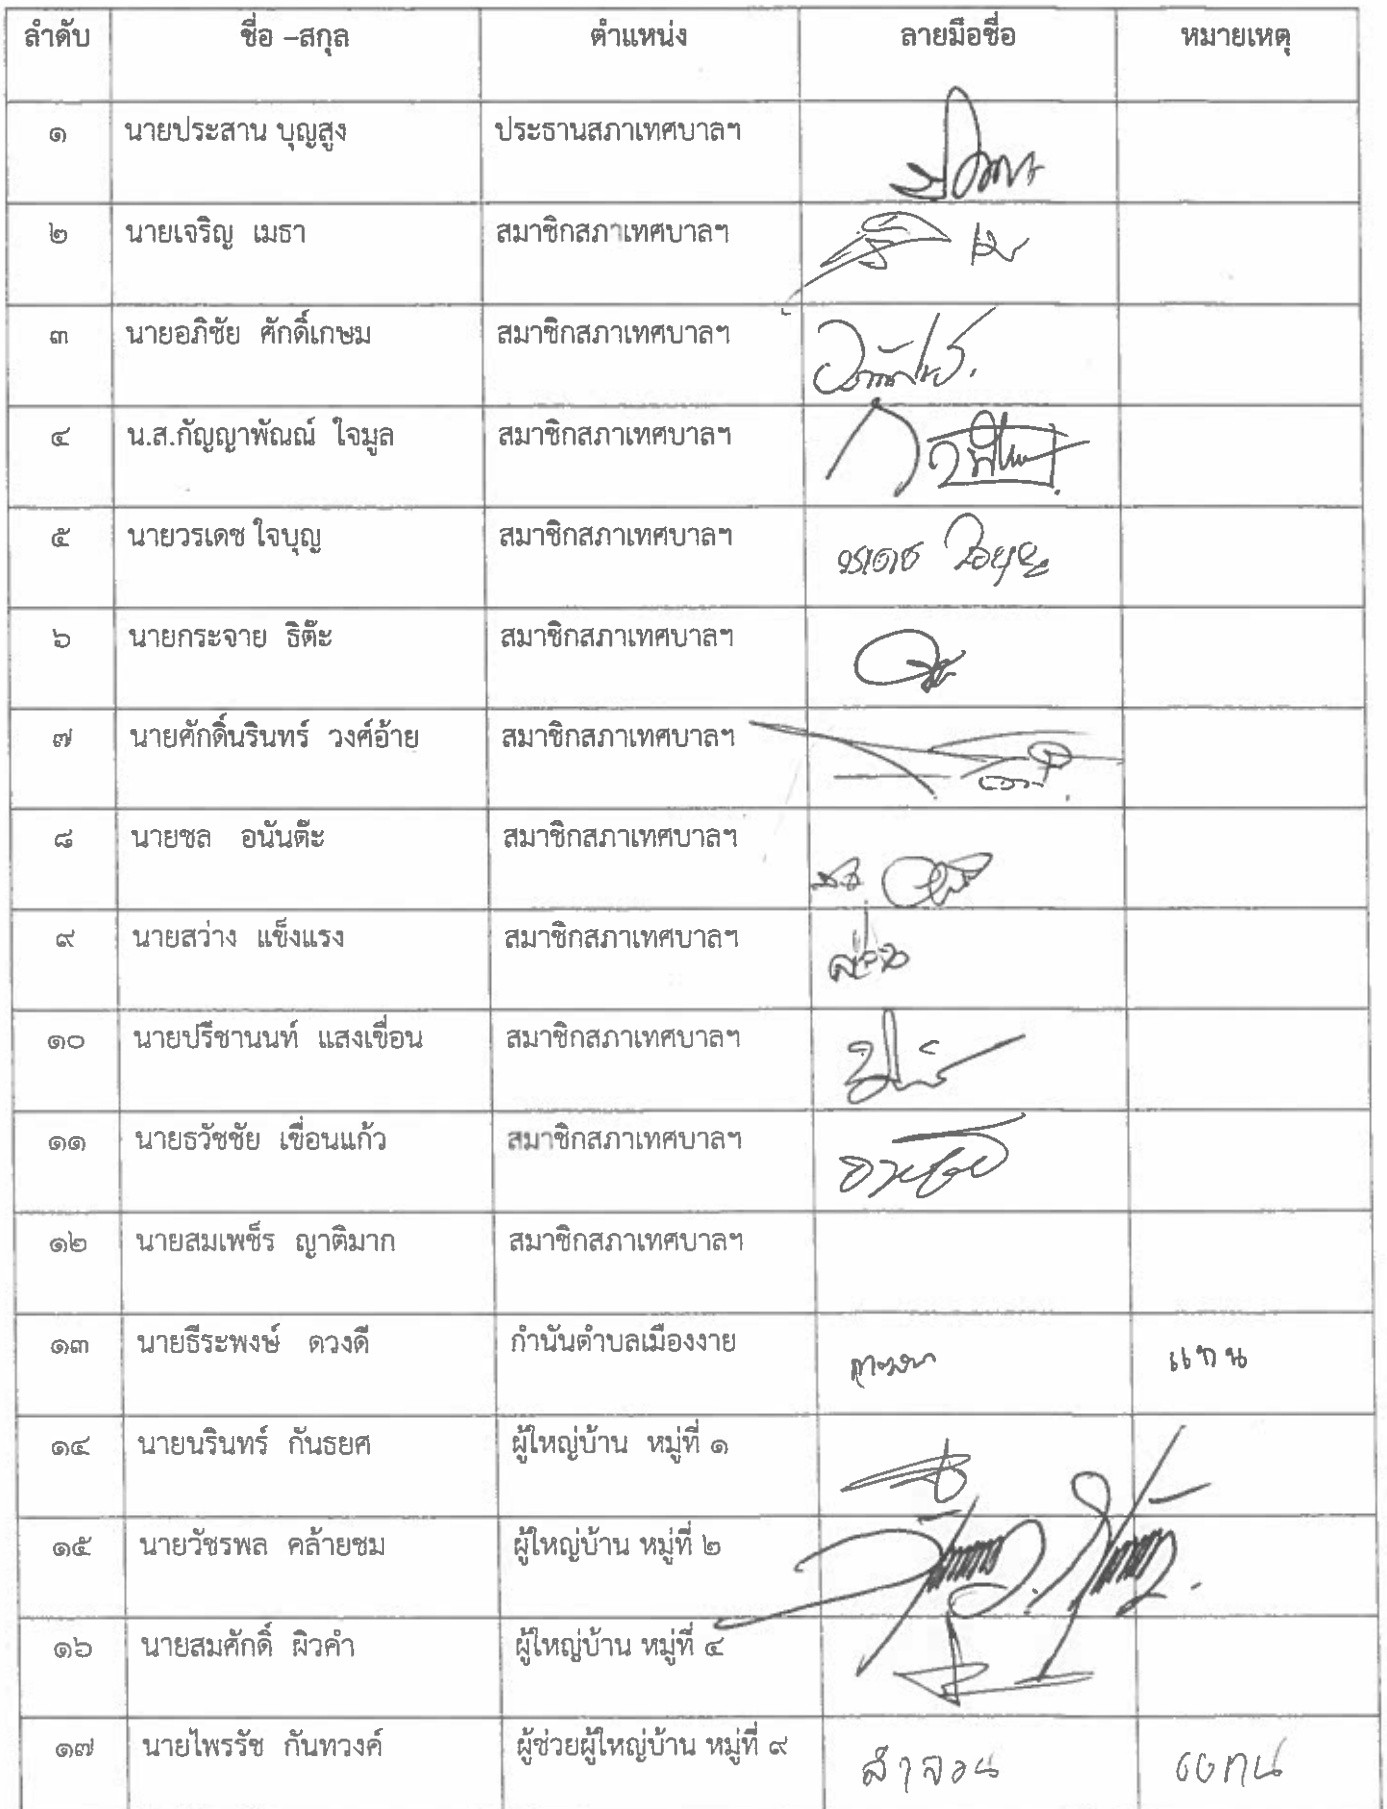 ลำดับ ชื่อ –สกุล ตำแหน่ง ลายมือชื่อ หมายเหตุ
๑ นายประสาน บุญสูง ประธานสภาเทศบาลฯ
๒ นายเจริญ เมธา สมาชิกสภาเทศบาลฯ
๓ นายอภิชัย ศักดิ์เกษม สมาชิกสภาเทศบาลฯ
๔ น.ส.กัญญาพัณณ์ ใจมูล สมาชิกสภาเทศบาลฯ
๕ นายวรเดช ใจบุญ สมาชิกสภาเทศบาลฯ วรเดช ใจบุญ
๖ นายกระจาย ธิต๊ะ สมาชิกสภาเทศบาลฯ
๗ นายศักดิ์นรินทร์ วงศ์อ้าย สมาชิกสภาเทศบาลฯ
๘ นายชล อนันต๊ะ สมาชิกสภาเทศบาลฯ
๙ นายสว่าง แข็งแรง สมาชิกสภาเทศบาลฯ
๑๐ นายปรีชานนท์ แสงเขื่อน สมาชิกสภาเทศบาลฯ
๑๑ นายธวัชชัย เขื่อนแก้ว สมาชิกสภาเทศบาลฯ
๑๒ นายสมเพช็ร ญาติมาก สมาชิกสภาเทศบาลฯ
๑๓ นายธีระพงษ์ ดวงดี กำนันตำบลเมืองงาย แทน
๑๔ นายนรินทร์ กันธยศ ผู้ใหญ่บ้าน หมู่ที่ ๑
๑๕ นายวัชรพล คล้ายชม ผู้ใหญ่บ้าน หมู่ที่ ๒
๑๖ นายสมศักดิ์ ผิวคำ ผู้ใหญ่บ้าน หมู่ที่ ๔
๑๗ นายไพรรัช กันทวงค์ ผู้ช่วยผู้ใหญ่บ้าน หมู่ที่ ๙ สำจวน แทน